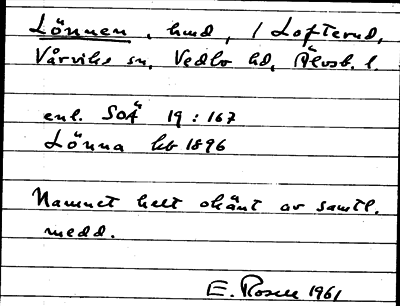 Lönnen, hmd, i Lofterud,
Vårviks sn, Vedbo hd, Älvsb. l.
enl. SOÄ 19:167
Lönna hb 1896
Namnet helt okänt av samtl.
medd.
E. Rosell 1961